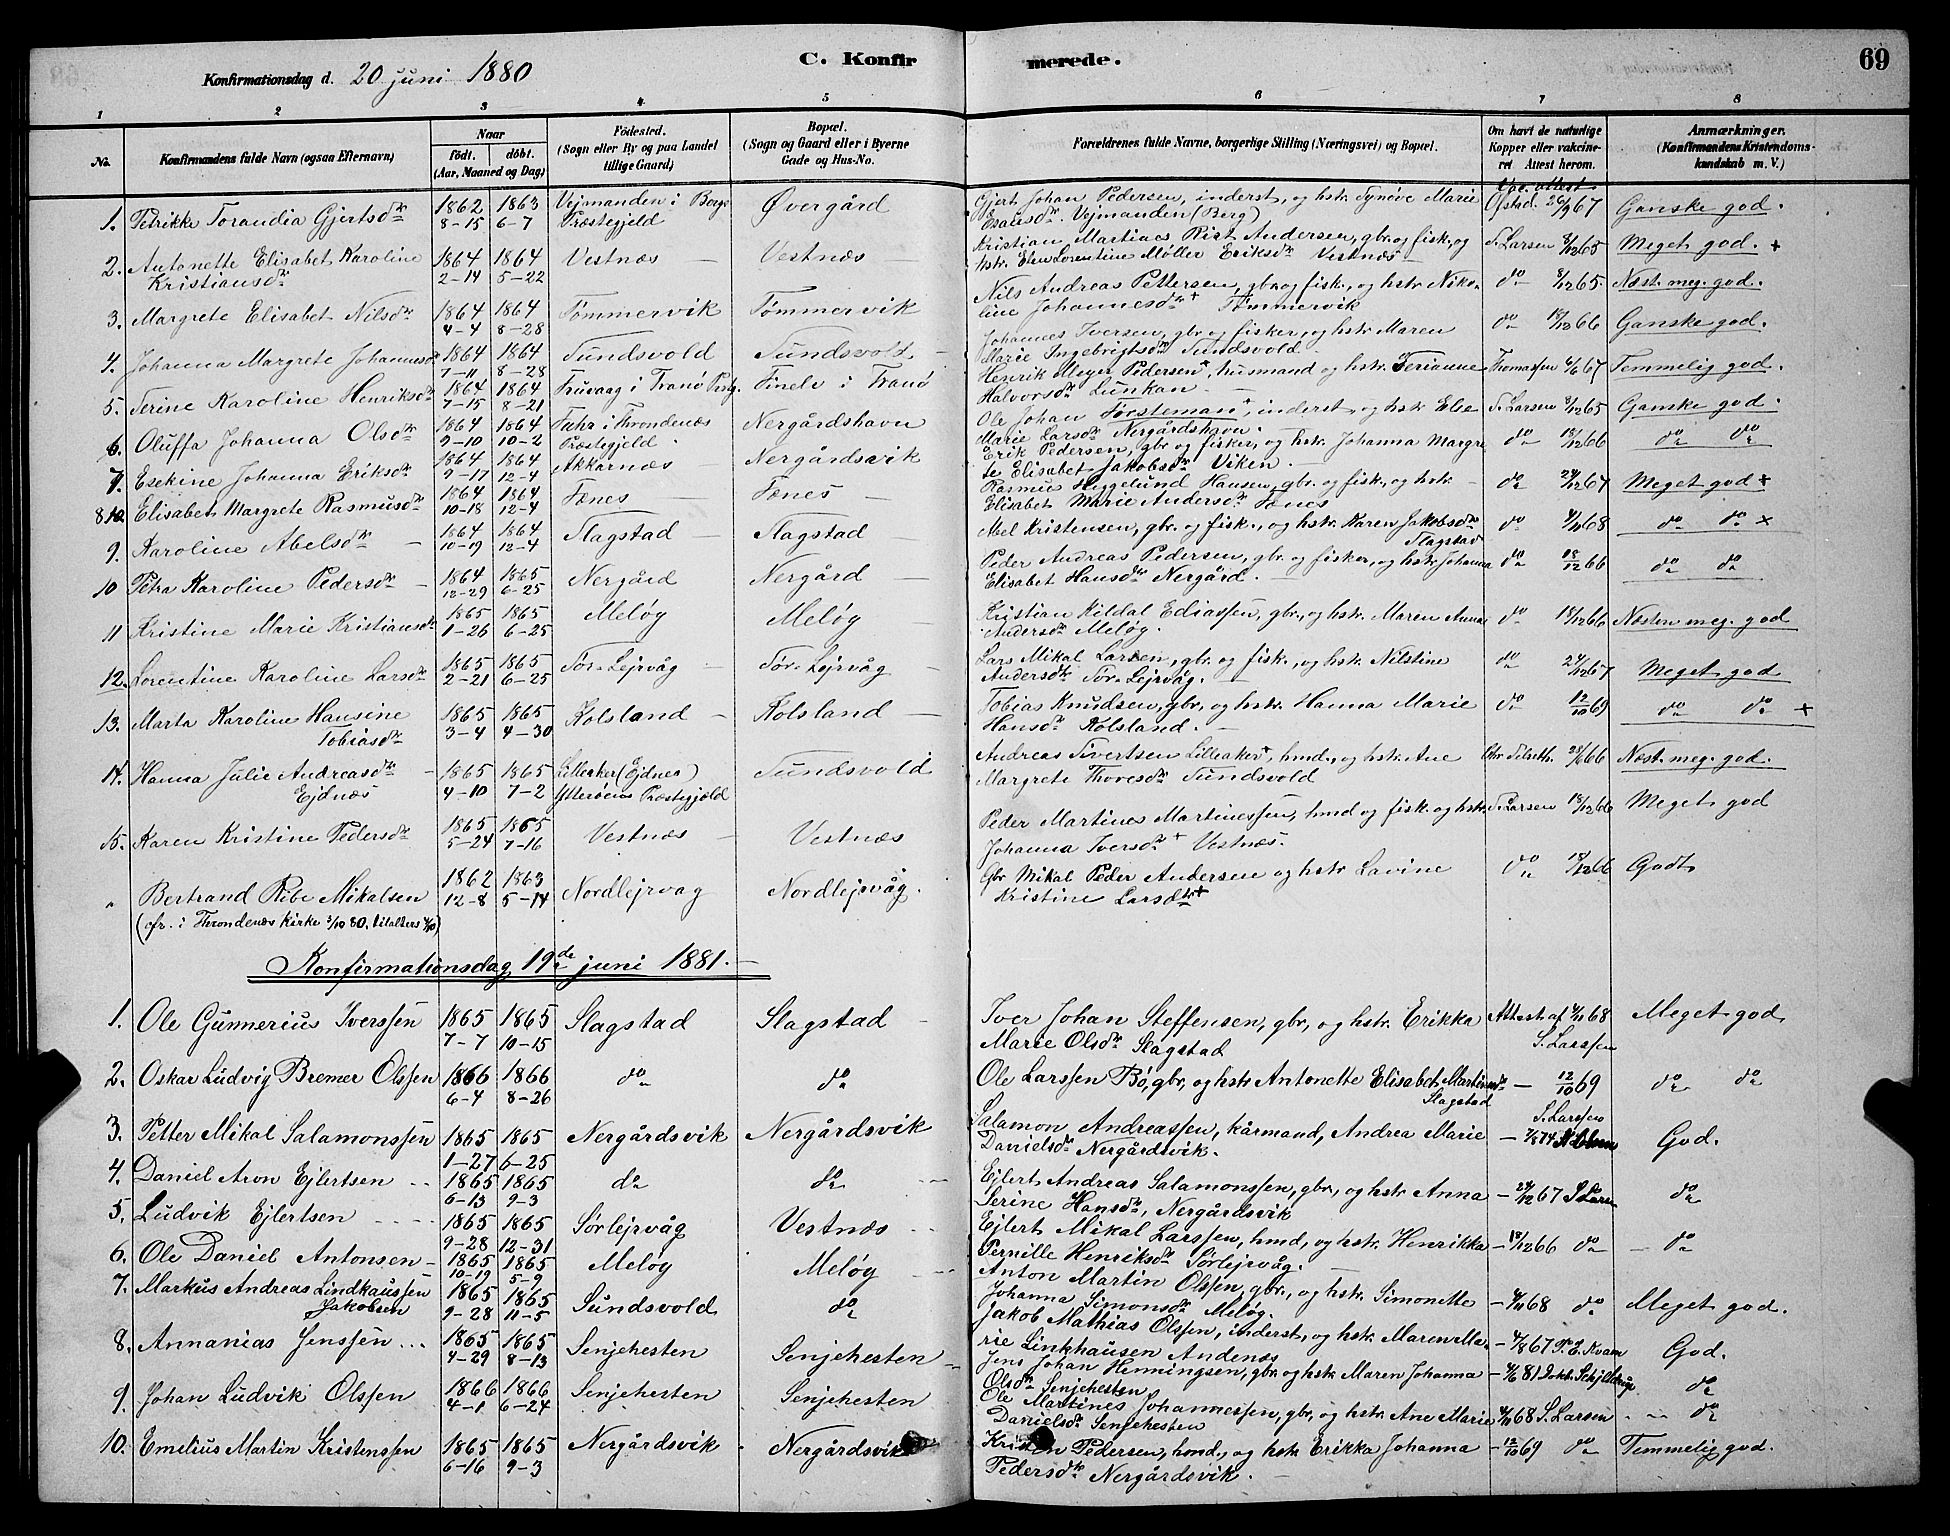 Konfirmationsdag d. 20 juni 1880
C. Konfirmerede.
69
1 2 3 4 5 6 7 8
No.
Konfirmandens fulde Navn (ogsaa Efternavn)
Naar født. døbt. (Aar, Maaned og Dag)
Fødested. (Sogn eller By og paa Landet tillige Gaard)
Bopæl. (Sogn og Gaard eller i Byerne Gade og Hus-No.
Forældrenes fulde Navne, borgerlige Stilling (Næringsvei) og Bopæl.
Om havt de naturlige Kopper eller vakcineret. Attest herom.
Anmærkninger. (Konfirmandens Kristendomskundskab m. V.)
1. Petrikke Torandia Gjertsdtr 1862 8-15 1863 6-7 Vejmanden i Bergs Præstegjeld Øvergård Gjert Johan Pedersen, inderst, og hstr Synøve Marie Esausdtr Vejmanden (Berg) Vac. attest Ofstad 26/9 67 Ganske god.
2. Antonette Elisabet Karoline Kristiansdtr 1864 2-14 1864 5-22 Vestnæs Vestnæs Kristian Martines Rist Andersen, gbr. og fisk., og hstr. Elen Lorentine Møller Eriksdtr Vestnæs S. Larsen 8/12 65 Meget god. +
3. Margrete Elisabet Nilsdtr 1864 4-4 1864 8-28 Tømmervik Tømmervik Nils Andreas Pettersen, gbr. og fisk., og hstr. Nikoline Johannesdtr + Tømmervik do 8/12 65 Næst. meg. god.
4. Johanna Margrete Johannesdtr 1864 7-11 1864 8-28 Sundsvold Sundsvold Johannes Iversen, gbr. og fisker, og hstr. Maren Marie Ingebrigtsdtr Sundsvold do 18/12 66 Ganske god.
5. Serine Karoline Henriksdtr 1864 7-15 1864 8-21 Fruvaag i Tranø Prstg. Finelv i Tranø Henrik Meyer Pedersen +, husmand og hstr. Serianne Halvorsdtr Lunkan Thomassen 6/6 67 Temmelig god.
6. Oluffa Johanna Olsdtr 1864 9-10 1864 10-2 Fuhr i Throndenæs Præstegjeld Nergårdshavn Ole Johan Torsteman +, inderst, og hstr. Else Marie Larsdtr Nergårdshavn S. Larsen 8/12 65 Ganske god
7. Esekine Johanna Eriksdtr 1864 9-17 1864 12-4 Akkarnæs Nergårdsvik Erik Pedersen, gbr. og fisker, og hstr. Johanna Margrete Elisabet Jakobsdtr Viken. do 18/12 66 do do
8 Elisabet Margrete Rasmusdtr 1864 10-18 1864 12-4 Fænes Fænes Rasmus Heggelund Hansen, gbr. og fisk., og hstr Elisabet Marie Andersdtr Fænes do 24/12 67 Meget god +
9. Karoline Abelsdtr 1864 10-19 1864 12-4 Slagstad Slagstad Abel Kristensen, gbr. og fisk., og hstr. Karen Jakobsdtr Slagstad do 4/11 68 do do +
10 Petra Karoline Pedersdtr 1864 12-29 1865 6-25 Nergård Nergård Peder Andreas Pedersen, gbr. og fisker, og hstr Johanna Elisabet Hansdtr Nergård. do 18/12 66 do do
11 Kristine Marie Kristiansdtr 1865 1-26 1865 6-25 Meløg Meløg Kristian Kildal Ediassen, gbr., og hstr. Maren Anna Andersdtr Meløg. do 18/12 66 Næsten meg. god
12. Lorentine Karoline Larsdtr 1865 2-21 1865 6-25 Sør-Lejrvåg Sør-Lejrvåg Lars Mikal Larsen, gbr. og fisk., og hstr. Nilstine Andersdtr Sør-Lejrvåg. do 24/12 67 Meget god
13. Marta Karoline Hansine Tobiasdtr 1865 3-4 1865 4-30 Kolsland Kolsland Tobias Knudsen, gbr., og hstr. Hanna Marie Hansdtr Kolsland. do 12/10 69 do do +
14. Hanna Julie Andreasdtr Ejdnæs 1865 4-10 1865 7-2 Lilleaker (Ejdnes) Ytterøens Præstegjeld Sundsvold Andreas Sivertsen Lilleaker +, hmd., og hstr. Ane Margrete Thoresdtr Sundsvold 28/6 66 Næst. meg. god.
15. Karen Kristine Pedersdtr 1865 5-24 1865 7-16 Vestnæs Vestnæs Peder Martines Martinessen, hmd og fisk. og hstr. Johanna Iversdtr + Vestnæs. S. Larsen 18/12 66 Meget god
" Bertrand Ribe Mikalsen 1862 12-8 1863 5-14 Nordlejrvag Nordlejrvåg. Gbr Mikal Peder Andersen og hstr. Lavine Kristine Larsdtr + do 18/12 66 Godt
(cfr. i Throndenæs Kirke 3/10 80.
Konfirmationsdag 19de juni 1881.
1. Ole Gunnerius Iverssen 1865 7-7 1865 10-15 Slagstad Slagstad Iver Johan Steffensen, gbr., og hstr. Erikka Marie Olsdtr Slagstad Attest af 4/11 68 S. Larssen Meget god
2. Oskar Ludvig Bremer Olssen 1866 6-4 1866 8-26 do do Ole Larssen Bø, gbr., og hstr Antonette Elisabet Martinsdtr Slagstad - 12/10 69 S. Larssen do do
3. Petter Mikal Salamonssen 1865 1-27 1865 6-25 Nergårdsvik Nergårdsvik Salamon Andreassen, kårmand, Andrea Marie Danielsdtr Nergårdsvik. God.
4. Daniel Aron Ejlertsen 1865 6-13 1865 9-3 do do Ejlert Andreas Salamonssen, gbr., og hstr Anna Serine Hansdtr, Nergårdsvik - 24/12 67 S. Larsen do
5. Ludvik Ejlertsen 1865 9-28 12-31 Sørlejrvåg Vestnæs Ejlert Mikal Larssen, hmd, og hstr. Henrikka Pernille Henriksdtr Sørlejrvåg. - 18/12 66 do do
6. Ole Daniel Antonsen 1865 10-19 1865 5-9 Meløg Meløg Anton Martin Olssen, gbr., og hstr. Simonette Johanna Simonsdtr Meløg. - 4/11 68 do Meget god.
7. Markus Andreas Lindkaussen Jakobsen 1865 9-28 1865 11-5 Sundsvold do Jakob Mathias Olssen, inderst, og hstr Maren Marie Linkhausen Andenæs - 4/8 67 P. E. Kvam God.
8. Annanias Jenssen 1865 4-29 1865 8-13 Senjehesten Senjehesten Jens Johan Henningsen, gbr. og hstr. Maren Johanna Olsdtr Senjehesten - 4/6 81 Dokt. Schjelderup do
9. Johan Ludvik Olssen 1866 4-1 1866 6-24 Senjehesten Senjehesten Ole Martines Johannessen, gbr., og hstr. Ane Marie Danielsdtr Senjehesten 4/11 68 S. Larsen do
10. Emelius Martin Kristenssen 1865 6-16 1865 9-3 Nergårdsvik Nergårdsvik Kristen Pedersen, hmd., og hstr. Erikka Johanna Pedersdtr Nergårdsvik. - 12/10 69 do Temmelig god.